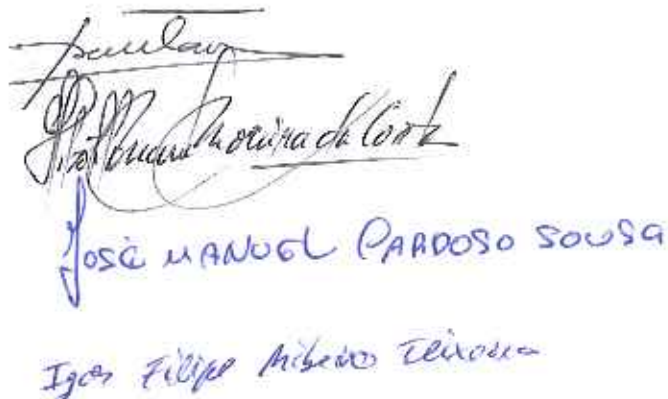 Moreira da Costa
José MANUEL CARDOSO SOUSA
Igor Filipe Ribeiro Teixeira